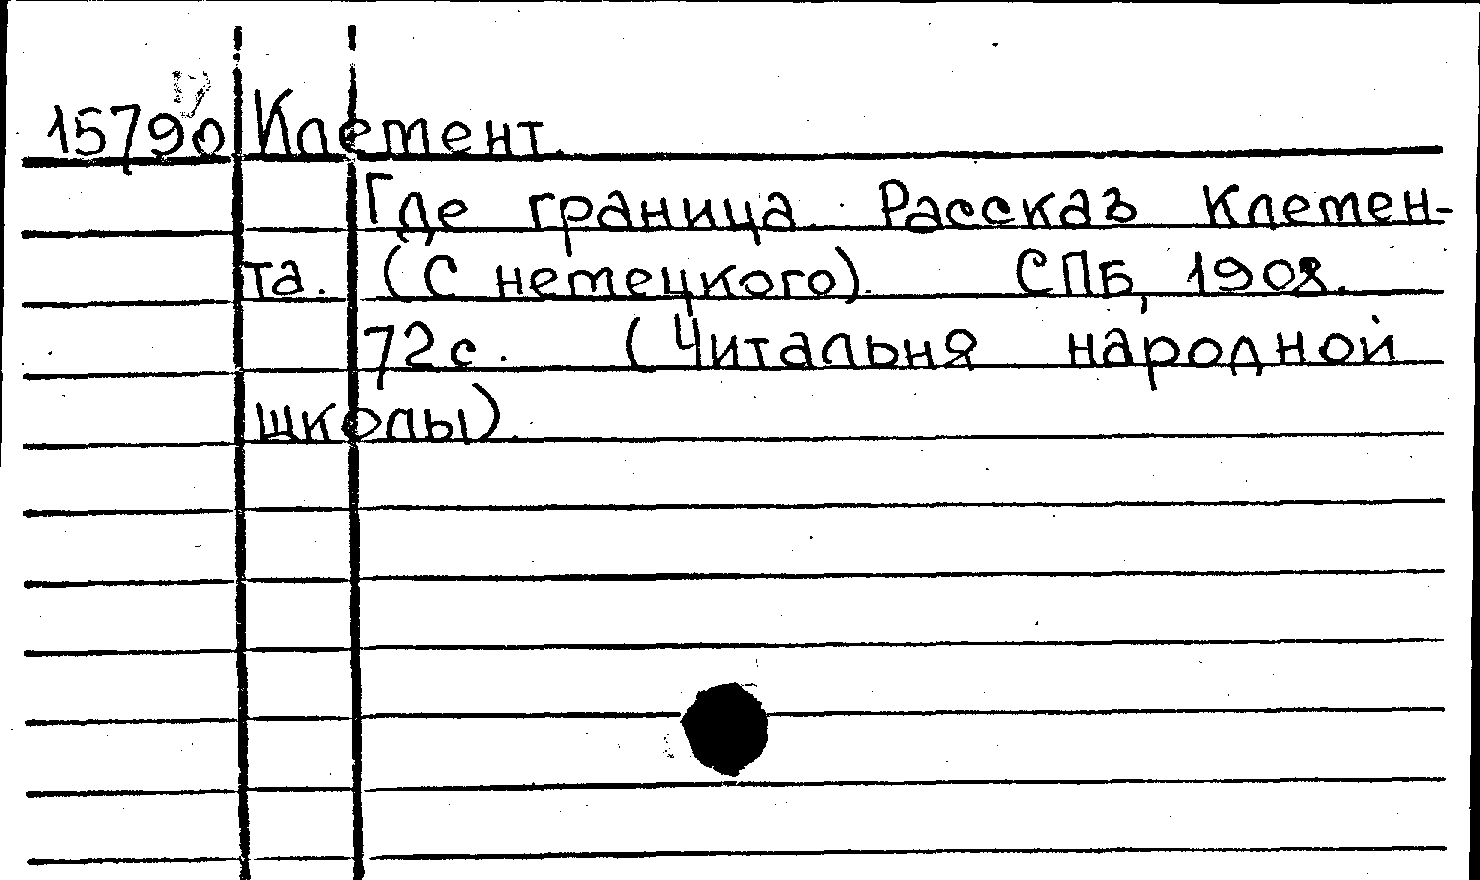 15790 Клемент.
Где граница. Рассказ Клемен-
та. (С немецкого). СПБ, 1908.
72с. (Читальня народной
школы).